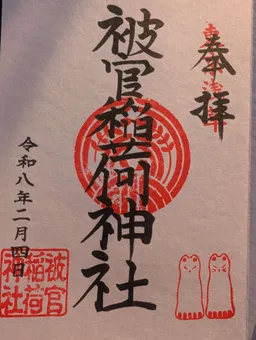 奉拝
被官稲荷神社
令和八年二月四日
被官
稲荷
神社